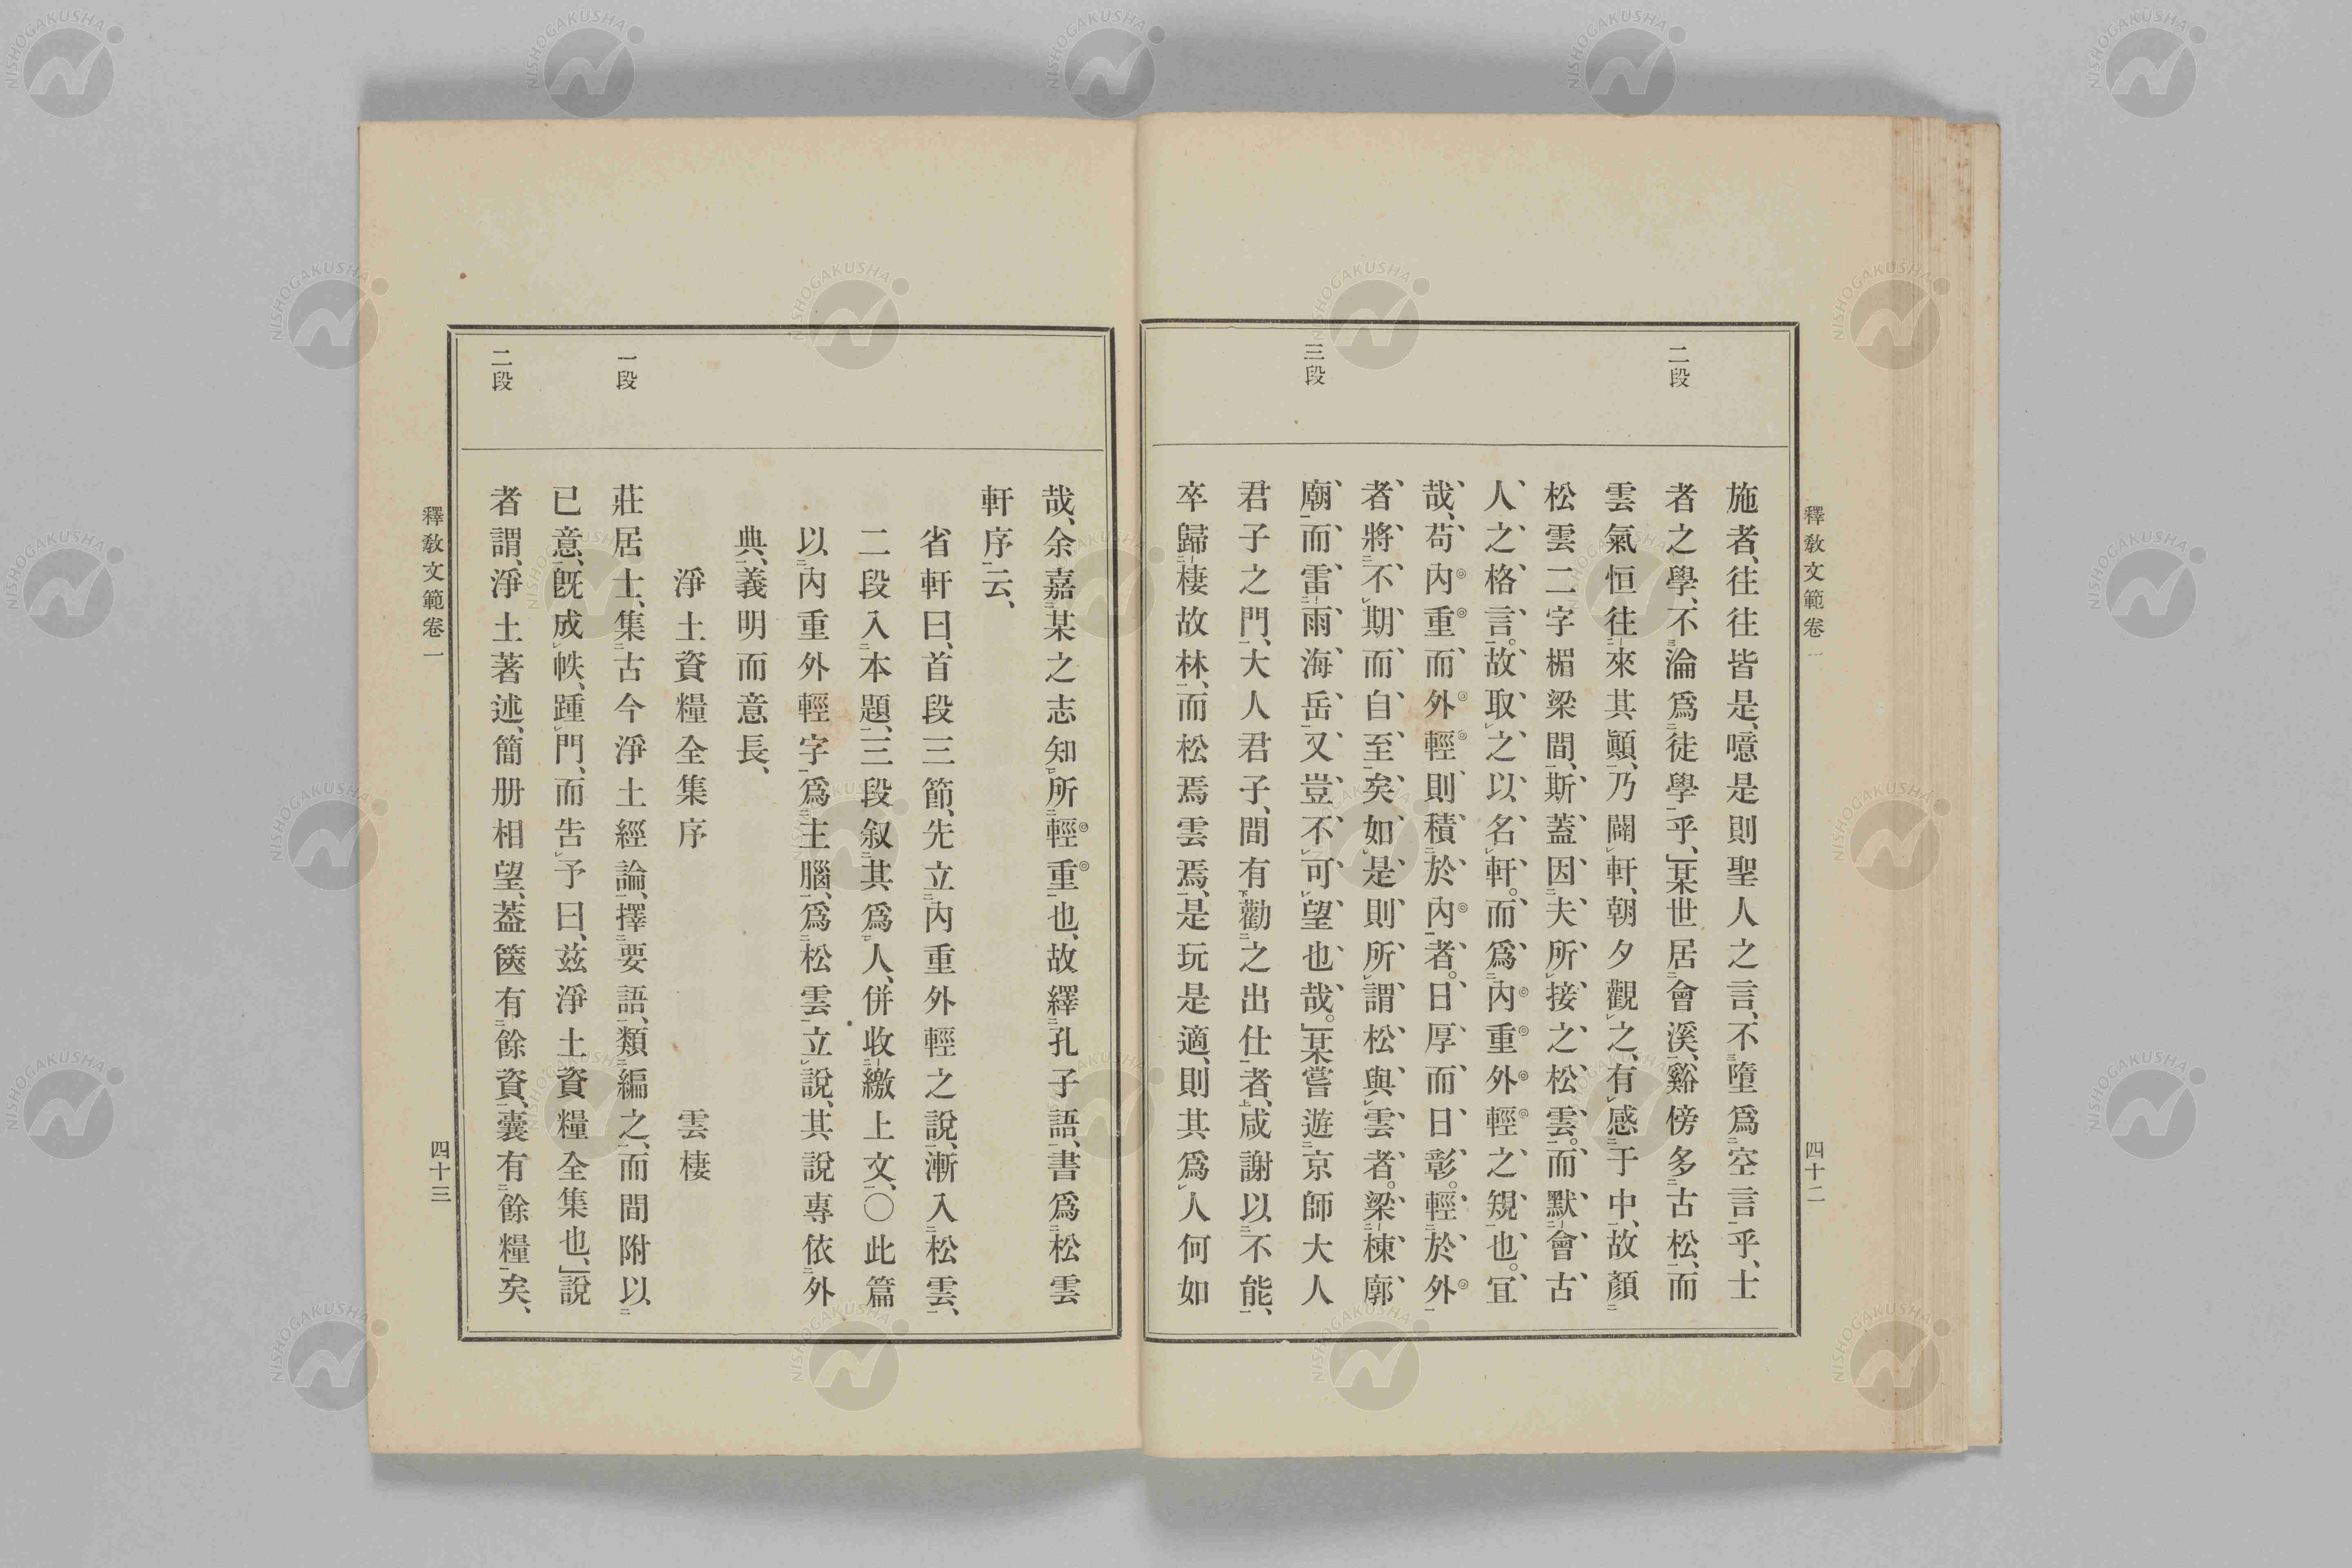 釋教文範卷一
四十二
二段
三段
施者、往往皆是、噫是則聖人之言、不墮爲空言乎、士
者之學、不淪爲徒學乎、某世居會溪、谿傍多古松、而
雲氣恒往來其顚、乃闢軒、朝夕觀之、有感于中、故顏
松雲二字楣梁間、斯蓋因夫所接之松雲。而默會古
人之格言。故取之以名軒。而爲內重外輕之規也。宜
哉、苟內重而外輕則積於內者。日厚而日彰。輕於外
者將不期而自至矣如是則所謂松與雲者。梁棟廓
廟、而雷雨海岳、又豈不可望也哉。某嘗遊京師大人
君子之門、大人君子、間有勸之出仕者、咸謝以不能、
卒歸棲故林、而松焉雲焉、是玩是適、則其爲人何如
哉、余嘉某之志知所輕重也、故繹孔子語、書爲松雲
軒序云、
省軒曰、首段三節、先立內重外輕之說、漸入松雲、
二段入本題、三段叙其爲人、併收繳上文、〇此篇
以內重外輕字爲主腦、爲松雲立說、其說專依外
典、義明而意長、
淨土資糧全集序 雲棲
一段
莊居士、集古今淨土經論、擇要語、類編之、而間附以
已意、旣成帙、踵門、而告予曰、茲淨土資糧全集也、說
二段
者謂、淨土著述、簡册相望、蓋篋有餘資、囊有餘糧矣、
釋教文範卷一
四十三
NISHOGAKUSHA